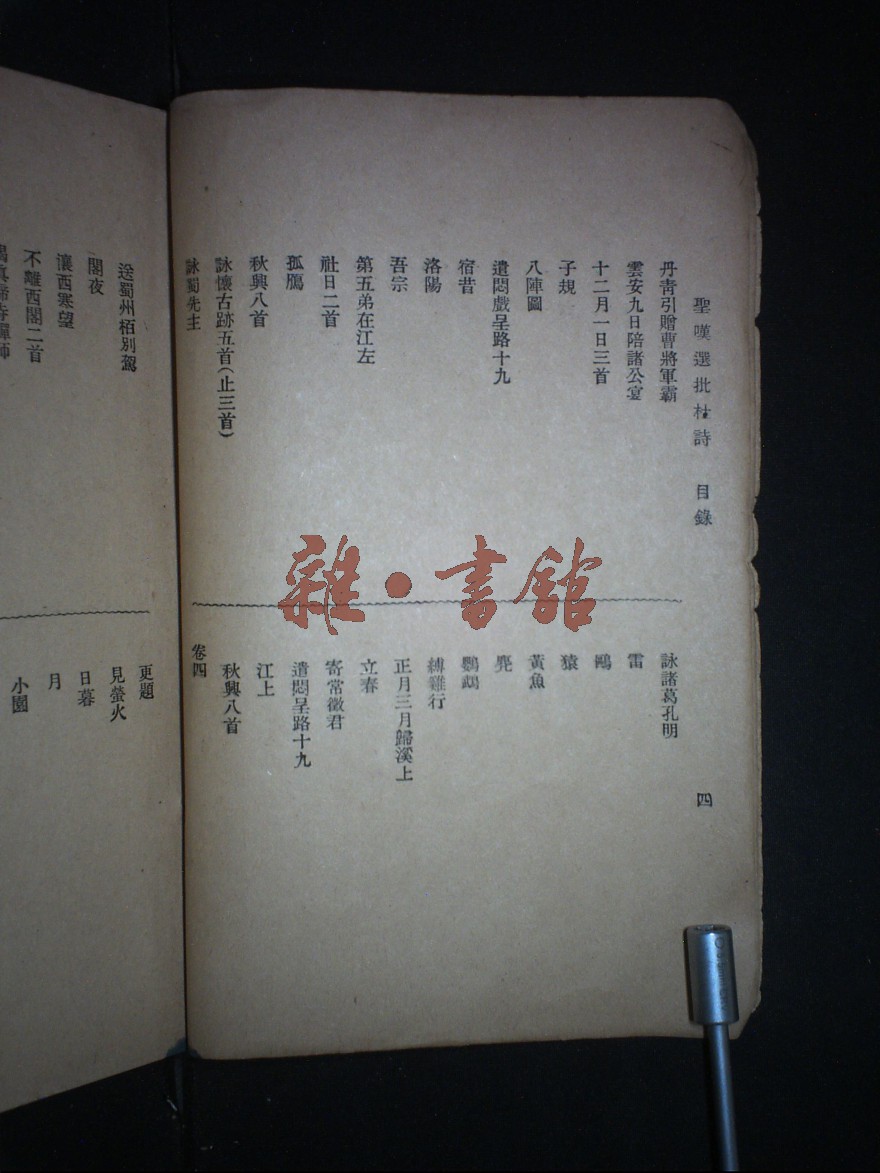 聖嘆選批杜詩 目錄
四
丹青引贈曹將軍霸
雲安九日陪諸公宴
十二月一日三首
子規
八陣圖
遣悶戲呈路十九
宿昔
洛陽
吾宗
第五弟在江左
社日二首
孤鴈
秋興八首
詠懷古跡五首(止三首)
詠蜀先主
詠諸葛孔明
雷
鷗
猿
黃魚
麂
鸚鵡
縛雞行
正月三月歸溪上
立春
寄常徵君
遣悶呈路十九
江上
秋興八首
卷四
送蜀州栢別駕
閣夜
瀼西寒望
不離西閣二首
謁真諦寺禪師
更題
見螢火
日暮
月
小園
雜·書館